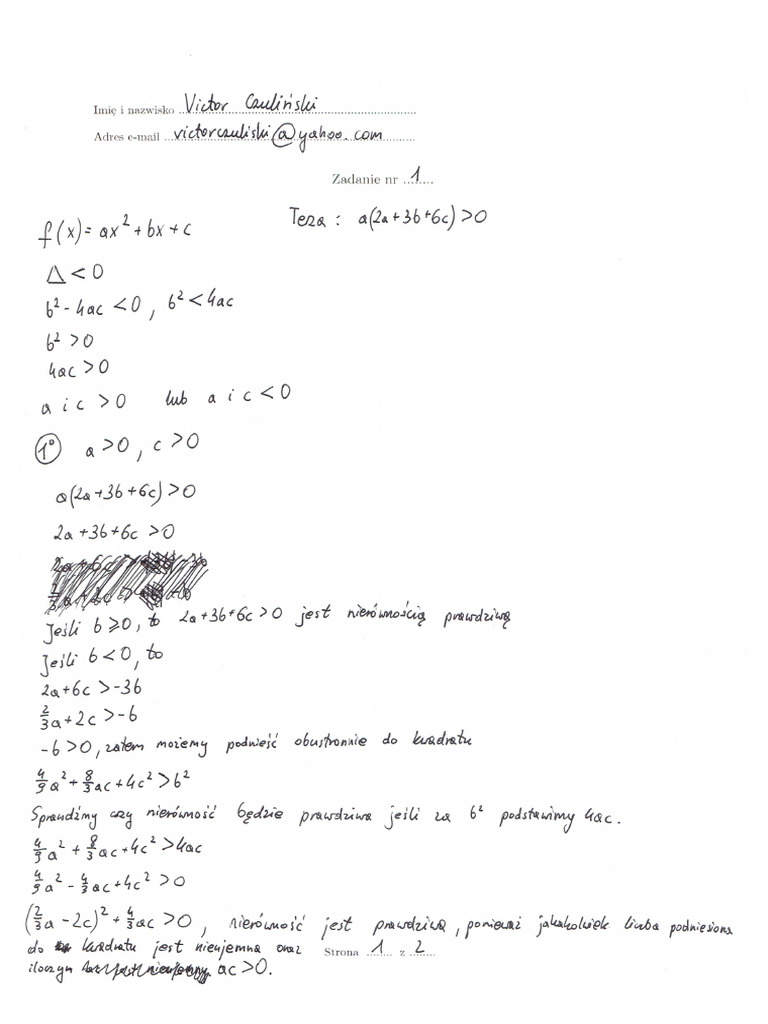 Imię i nazwisko Victor Czuliński
Adres e-mail victorczuliski@yahoo.com
Zadanie nr 1
f(x) = ax² + bx + c
Teza: a(2a+3b+6c) > 0
Δ < 0
b² - 4ac < 0, b² < 4ac
b² > 0
4ac > 0
a i c > 0 lub a i c < 0
1° a > 0, c > 0
a(2a+3b+6c) > 0
2a + 3b + 6c > 0
Jeśli b ⩾ 0, to 2a+3b+6c > 0 jest nierównością prawdziwą
Jeśli b < 0, to
2a + 6c > -3b
2/3 a + 2c > -b
-b > 0, zatem możemy podnieść obustronnie do kwadratu
4/9 a² + 8/3 ac + 4c² > b²
Sprawdźmy czy nierówność będzie prawdziwa jeśli za b² podstawimy 4ac.
4/9 a² + 8/3 ac + 4c² > 4ac
4/9 a² - 4/3 ac + 4c² > 0
(2/3 a - 2c)² + 4/3 ac > 0, nierówność jest prawdziwa, ponieważ jakakolwiek liczba podniesiona
do kwadratu jest nieujemna oraz
iloczyn ac > 0.
Strona 1 z 2